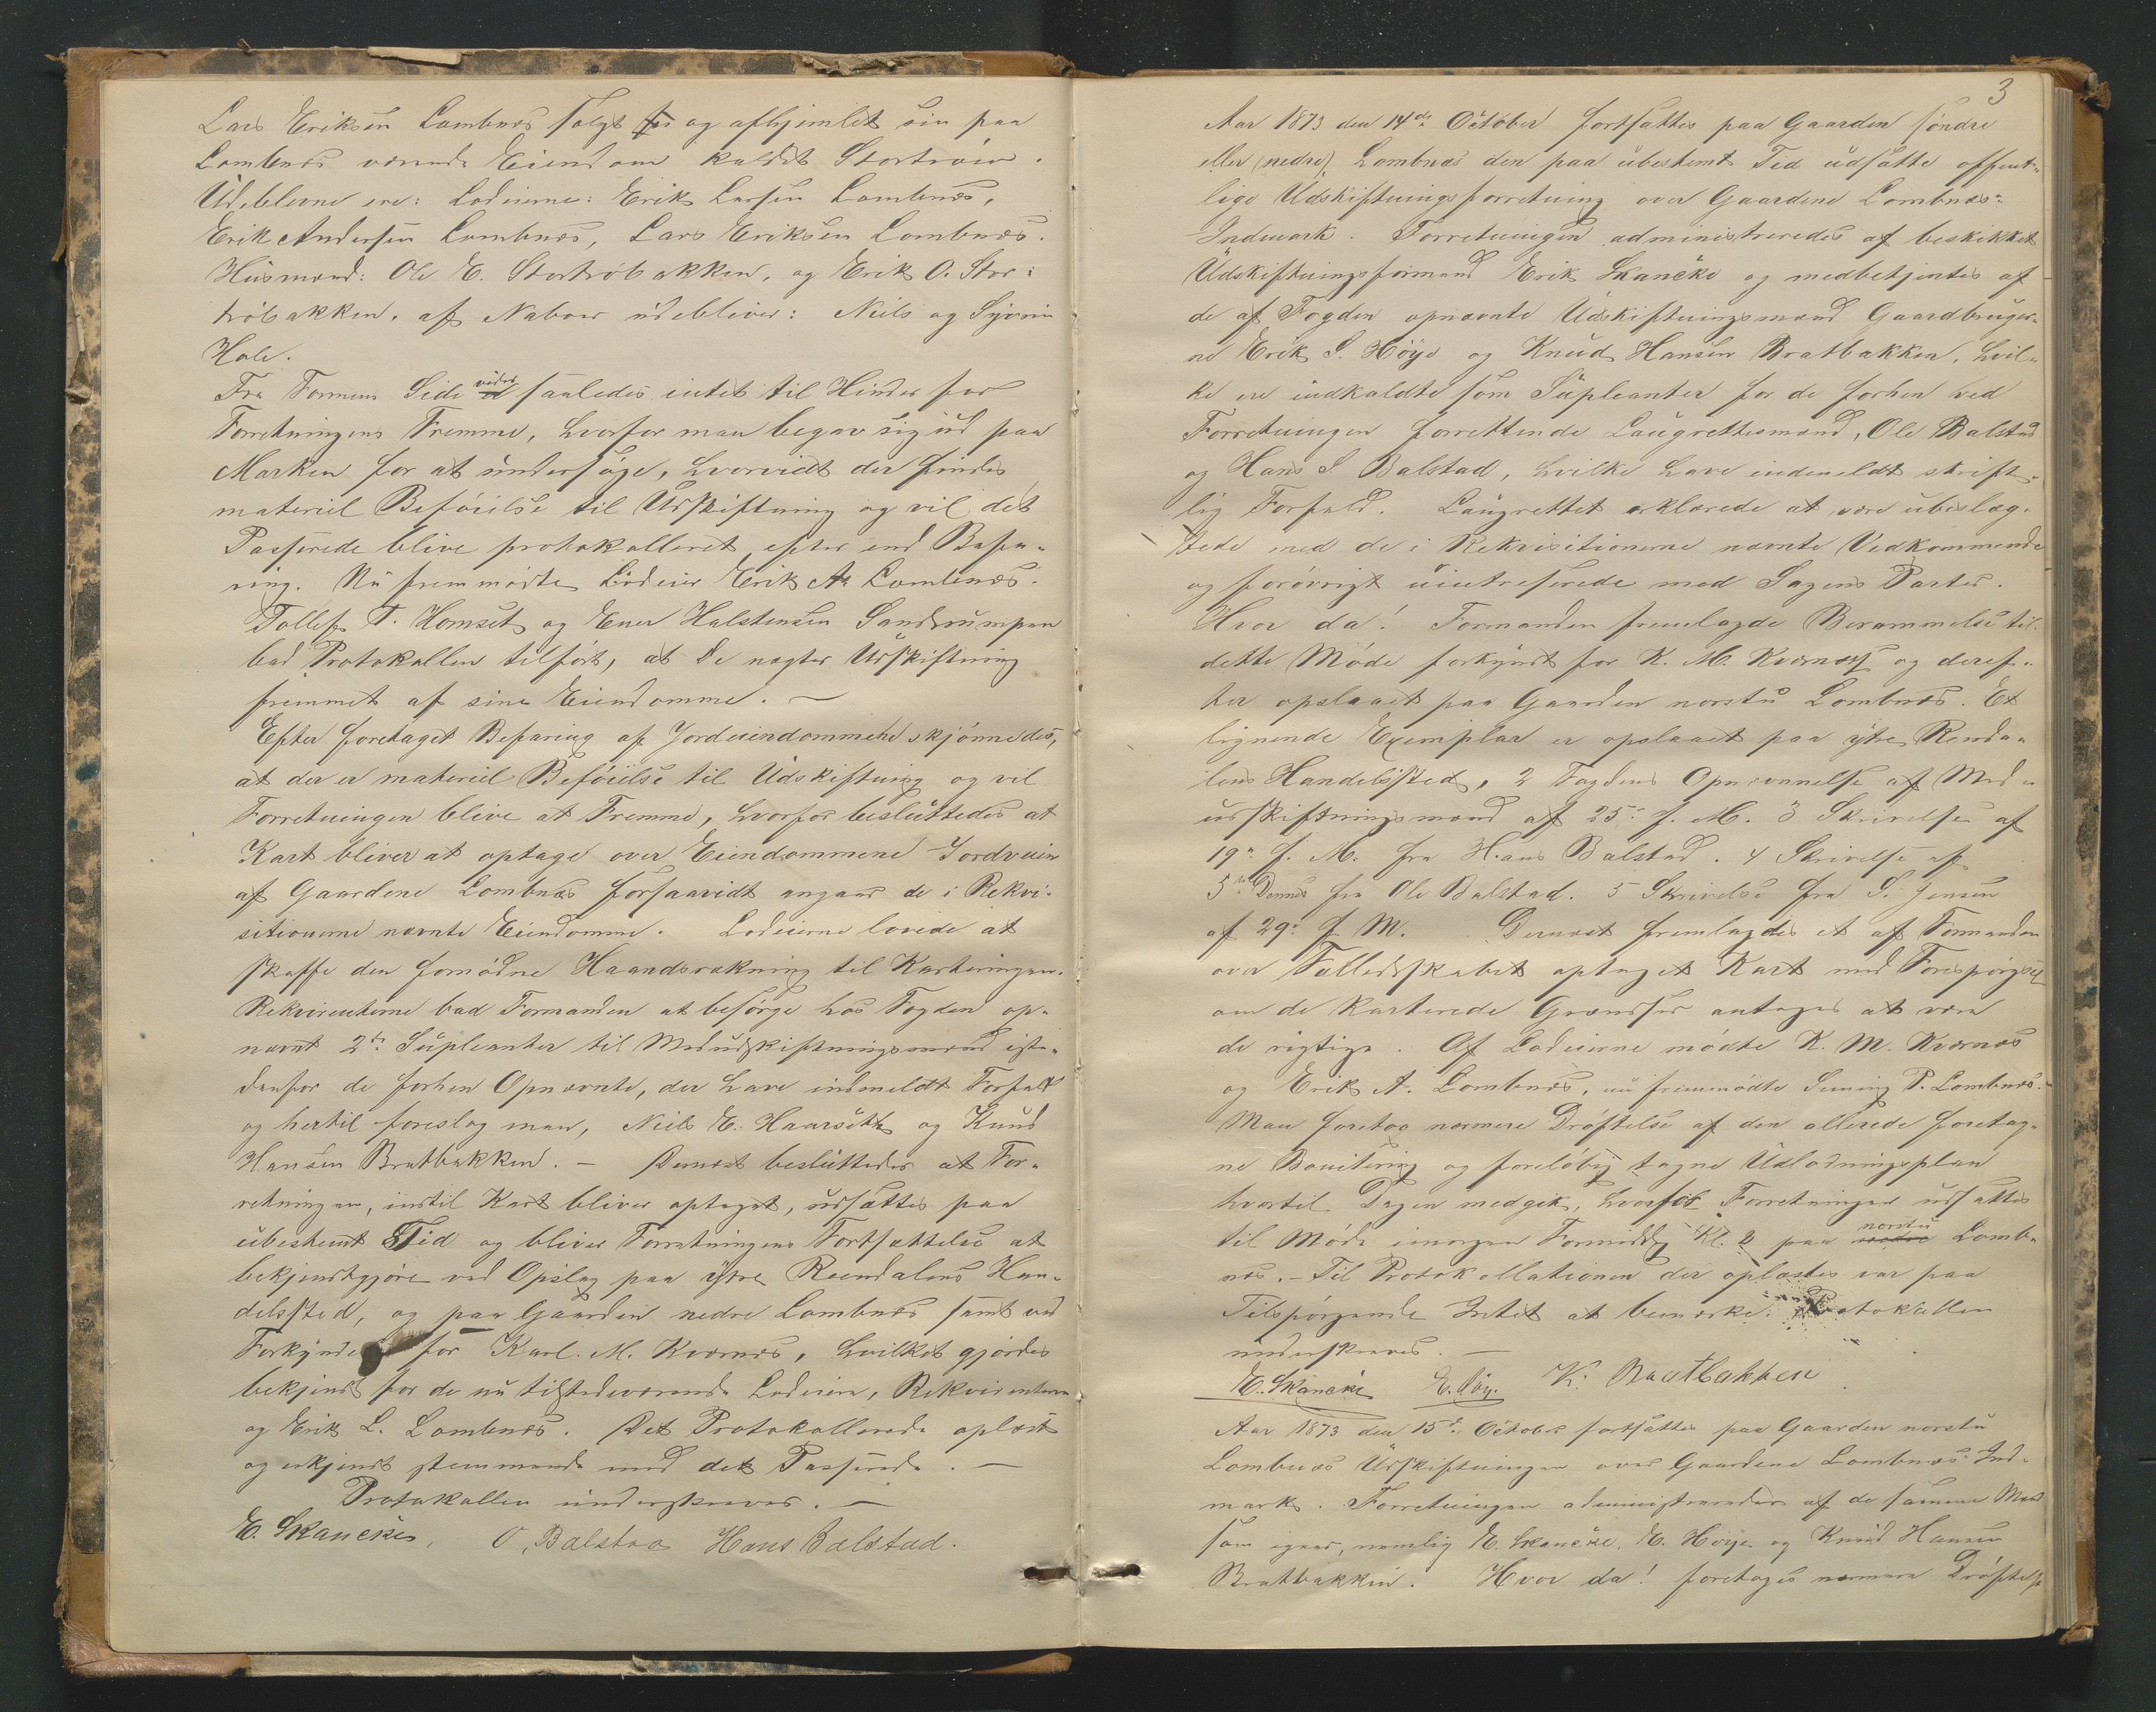 Lars Eriksen Lombnæs solgt og afhjemlet sin paa
Lombnæs værende Eiendom kaldet Stortrøen.
Udeblevne ere: Lodeierne: Erik Larsen Lombnæs,
Erik Andersen Lombnæs, Lars Eriksen Lombnæs.
Husmænd: Ole E. Stortrøbakken, og Erik O. Stor-
trøbakken, af Naboer udebliver: Niels og Syverin
Hole.
Fra Formens Side vides saaledes intet til Hinder for
Forretningens Fremme, hvorfor man begav sig ud paa
Marken for at undersøge, hvorvidt der findes
materiel Beføielse til Udskiftning og vil det
Passerede blive protokolleret efter end Befa-
ring. Nu fremmødte Lodeier Erik A. Lombnæs.
Tollef T. Homset og Ener Halstensen Sandrumpen
bad Protokollen tilført, at De nægter Udskiftning
fremmet af sine Eiendomme. —
Efter foretaget Befaring af Jordeiendommene skjønnedes,
at der er materiel Beføielse til Udskiftning og vil
Forretningen blive at Fremme, hvorfor besluttedes at
Kart bliver at optage over Eiendommene Jordvein
af Gaardene Lombnæs forsaavidt angaar de i Rekvi-
sitionerne nævnte Eiendomme. Lodeierne lovede at
skaffe den fornødne Haandsrækning til Karteringen.
Rekvirenterne bad Formanden at besørge hos Fogden op-
nævnt 2de Supleanter til Medudskiftningsmænd iste-
denfor de forhen Opnævnte, der have indmeldt Forfald
og hertil foreslog man, Niels E. Haarseth og Knud
Hansen Bratbakken. — Dernæst besluttedes at For-
retningen, indtil Kart bliver optaget, udsættes paa
ubestemt Tid og bliver Forretningens Fortsættelse at
bekjendtgjøre ved Opslag paa ytre Rendalens Han-
delssted, og paa Gaarden nedre Lombnæs samt ved
for Karl. M. Kværnæs, hvilket gjordes
bekjendt for de nu tilstedeværende Lodeiere, Rekvirenterne
og Erik L. Lombnæs. Det Protokollerede oplæst
og erkjendt stemmende med det Passerede. —
Protokollen underskreves. —
E. Skancke, O. Balstad Hans Balstad.
3
Aar 1873 den 14de October fortsattes paa Gaarden söndre
eller (nedre) Lombnæs den paa ubestemt Tid udsatte offent-
lige Udskiftningsforretning over Gaardene Lombnæs-
Indmark. Forretningen administreredes af beskikket
Udskiftningsformand Erik Skancke og medbetjentes af
de af Fogden opnævnte Udskiftningsmænd Gaardbruger-
ne Erik S. Höye og Knud Hansen Bratbakken, hvil-
ke ere indkaldte som Supleanter for de forhen ved
Forretningen forrettende Laugrettesmænd, Ole Balstad
og Hans S. Balstad, hvilke have indmeldt skrift-
lig Forfald. Laugrettet erklærede at være ubeslæg-
tede med de i Rekvisitionerne nævnte Vedkommende
og forøvrigt uintreserede med Sagens Parter.
Hvor da! Formanden fremlagde Berammelse til
dette Møde forkyndt for K. M. Kværnæs og deref-
ter opslaaet paa Gaarden norstu Lombnæs. Et
lignende Exemplar er opslaaet paa ytre Renda-
lens Handelssted, 2 Fogdens Opnævnnelse af Med-
udskiftningsmænd af 25de f. M. 3 Skrivelse af
19de f. M. fra Hans Balstad. 4 Skrivelse af
5te Dennes fra Ole Balstad. 5 Skrivelse fra S. Jensen
af 29de f. M. Dernæst fremlagdes et af Formanden
over Fælledsskabet optaget Kart med Forespørgsel
om de karterede Grændser antages at være
de rigtige. Af Lodeierne mødte K. M. Kværnæs
og Erik A. Lombnæs, nu fremmødte Siming P. Lombnæs.
Man foretog nærmere Drøftelse af den allerede foretag-
ne Bonitering og foreløbig tagne Udlodningsplan
hvortil Dagen medgik, hvorfor Forretningen udsattes
til Møde imorgen Formiddag Kl. 9 paa norstu Lomb-
næs. — Til Protokollationen der oplæstes var paa
Tilspørgende Intet at bemærke. Protokollen
underskreves. —
E. Skancke E. Höy. K. Bratbakken
Aar 1873 den 15de October fortsattes paa Gaarden norstu
Lombnæs Udskiftningen over Gaardene Lombnæs Ind-
mark. Forretningen administreredes af de samme Mænd
som igaar, nemlig E. Skancke, E. Höye og Knud Hansen
Bratbakken. Hvor da! foretoges nærmere Drøftelse